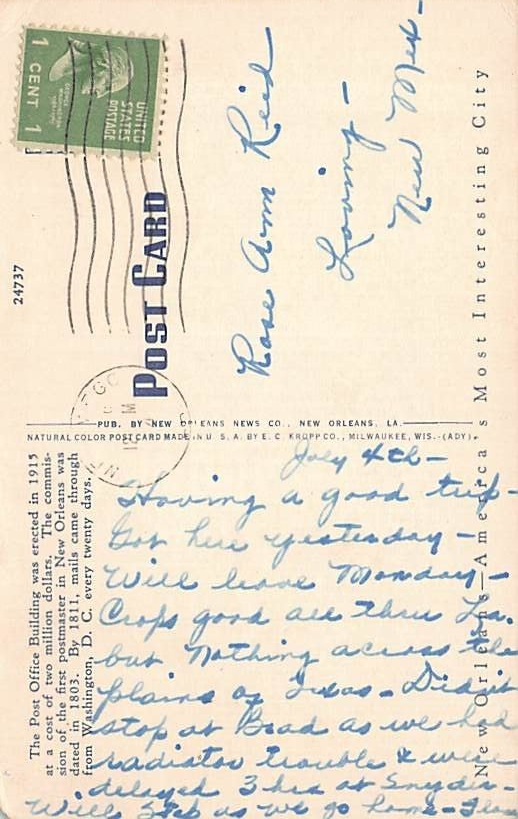 UNITED
STATES
POSTAGE
1 CENT 1
24737
POST CARD
Rose Ann Reid
Loving -
New Mex -
New Orleans—America's Most Interesting City
PUB. BY NEW ORLEANS NEWS CO., NEW ORLEANS, LA.
NATURAL COLOR POST CARD MADE IN U. S. A. BY E. C. KROPP CO., MILWAUKEE, WIS. (ADY).
The Post Office Building was erected in 1915
at a cost of two million dollars. The commis-
sion of the first postmaster in New Orleans was
dated in 1803. By 1811, mails came through
from Washington, D. C. every twenty days.
July 4th -
Having a good trip -
Got here yesterday -
Will leave Monday -
Crops good all thru La.
but nothing across the
plains of Texas - Didn't
stop at Brad as we had
radiator trouble & were
delayed 3 hrs at Snyder -
Will stop as we go home -